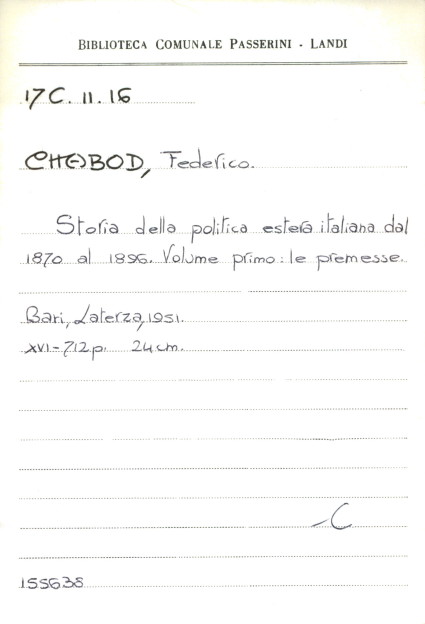 BIBLIOTECA COMUNALE PASSERINI - LANDI
17C. 11. 16
CHABOD, Federico.
Storia della politica estera italiana dal
1870 al 1896. Volume primo: le premesse.
Bari, Laterza, 1951.
XVI-712p. 24cm.
-C
155638